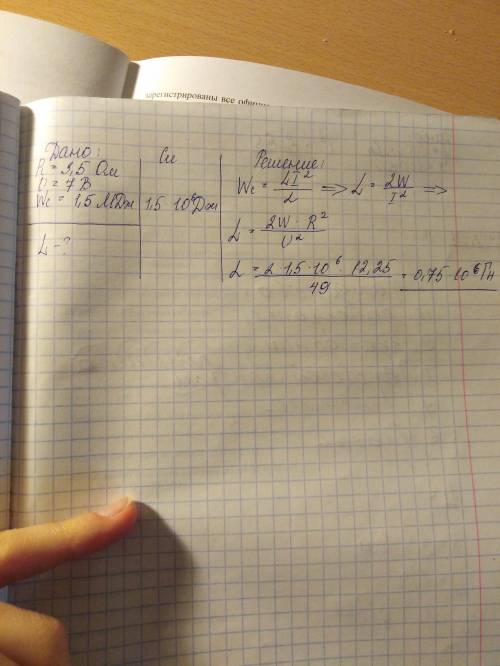 зарегистрированы все
Дано:
R = 3,5 Ом
U = 7 В
Wc = 1,5 МДж
L = ?
Си
1,5 · 10⁶ Дж
Решение:
Wc = LI²/2 => L = 2W/I² =>
L = 2W · R²/U²
L = 2 · 1,5 · 10⁶ · 12,25/49 = 0,75 · 10⁶ Гн